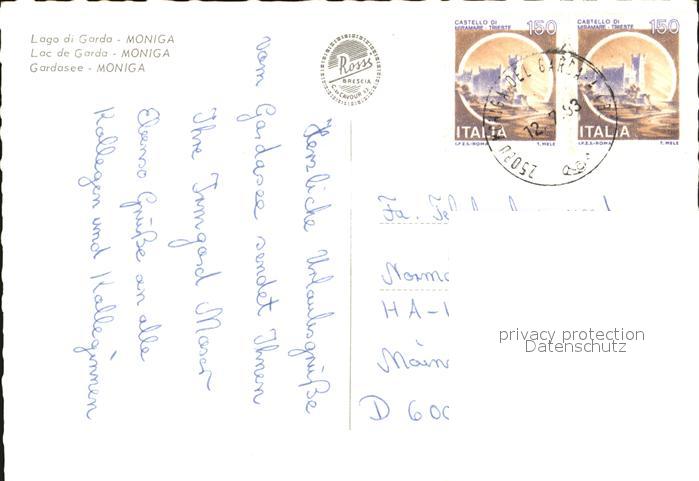 Lago di Garda - MONIGA
Lac de Garda - MONIGA
Gardasee - MONIGA
Rossi
BRESCIA
C.so CAVOUR 43
CASTELLO DI
MIRAMARE - TRIESTE
150
ITALIA
I.P.Z.S.-ROMA
T. MELE
CASTELLO DI
MIRAMARE - TRIESTE
150
ITALIA
I.P.Z.S.-ROMA
T. MELE
DEL GARDA
25080
Herzliche Urlaubsgrüße
vom Gardasee sendet Ihnen
Ihre Irmgard Moser
Ebenso Grüße an alle
Kollegen und Kolleginnen
Fa.
Norm
HA-
Main
D 600
privacy protection
Datenschutz